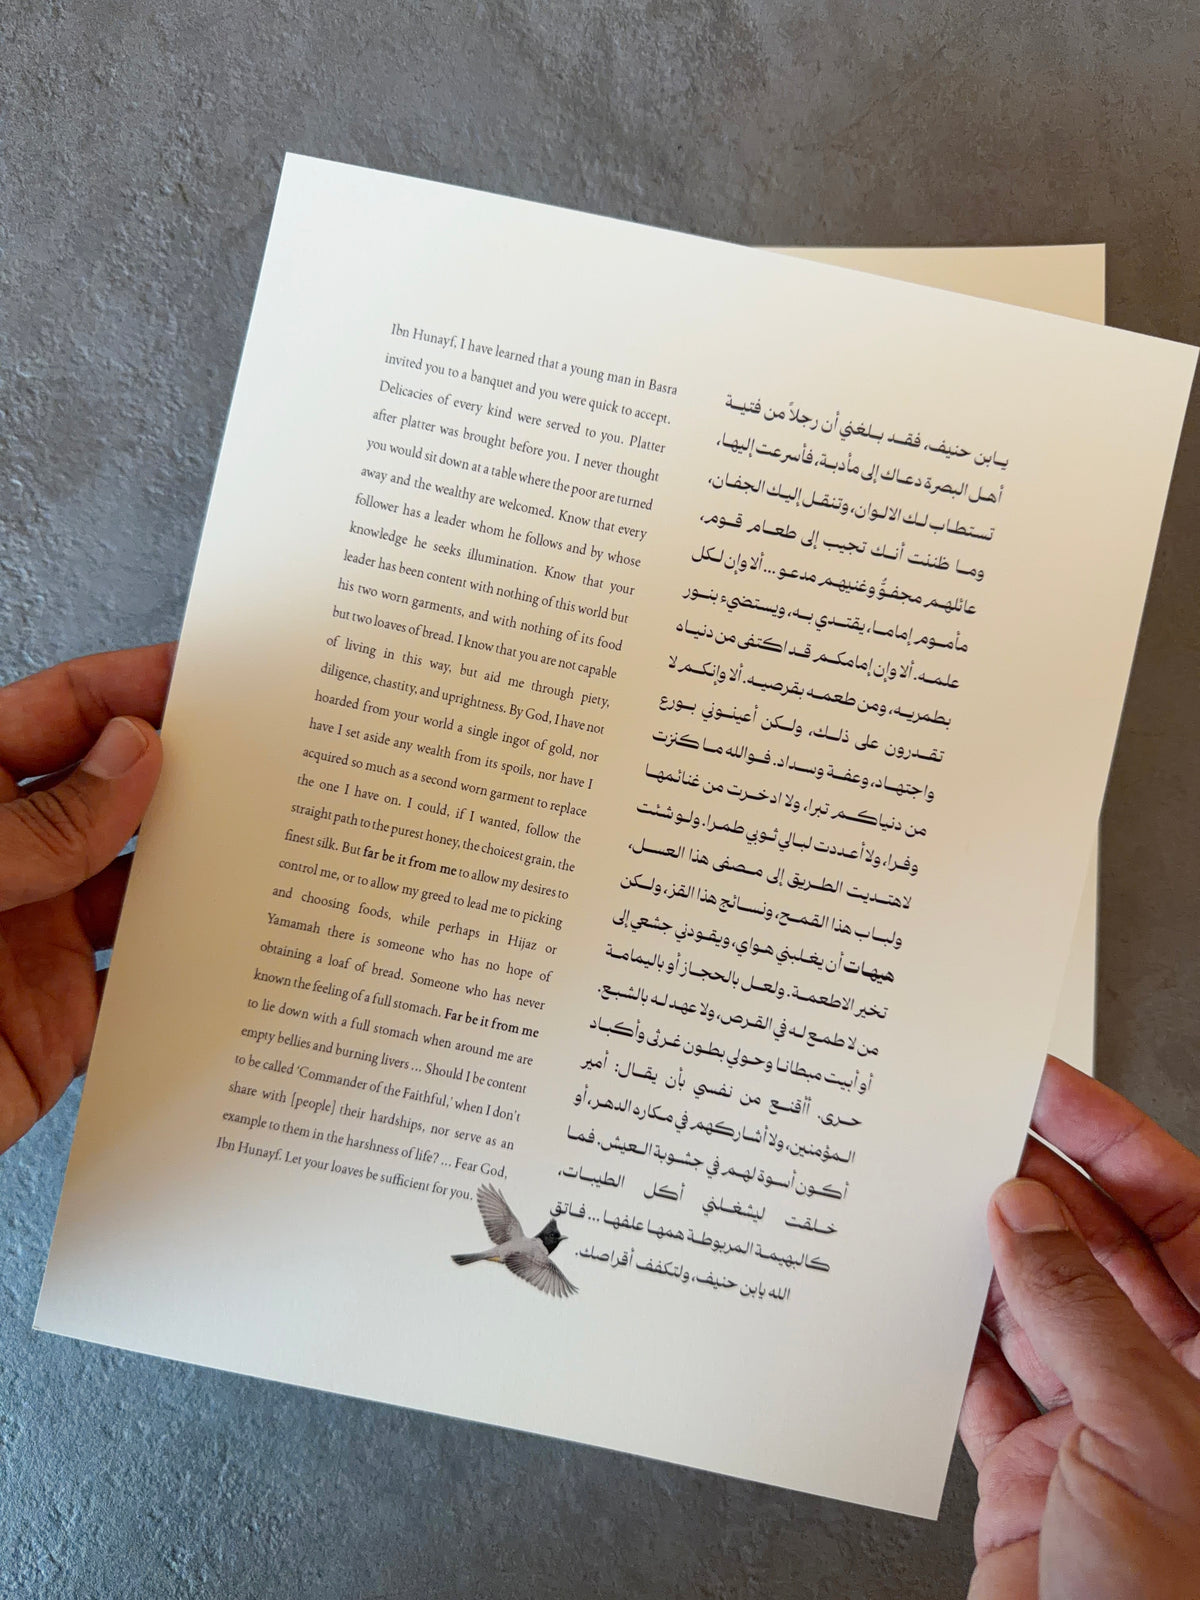 Ibn Hunayf, I have learned that a young man in Basra
invited you to a banquet and you were quick to accept.
Delicacies of every kind were served to you. Platter
after platter was brought before you. I never thought
you would sit down at a table where the poor are turned
away and the wealthy are welcomed. Know that every
follower has a leader whom he follows and by whose
knowledge he seeks illumination. Know that your
leader has been content with nothing of this world but
his two worn garments, and with nothing of its food
but two loaves of bread. I know that you are not capable
of living in this way, but aid me through piety,
diligence, chastity, and uprightness. By God, I have not
hoarded from your world a single ingot of gold, nor
have I set aside any wealth from its spoils, nor have I
acquired so much as a second worn garment to replace
the one I have on. I could, if I wanted, follow the
straight path to the purest honey, the choicest grain, the
finest silk. But far be it from me to allow my desires to
control me, or to allow my greed to lead me to picking
and choosing foods, while perhaps in Hijaz or
Yamamah there is someone who has no hope of
obtaining a loaf of bread. Someone who has never
known the feeling of a full stomach. Far be it from me
to lie down with a full stomach when around me are
empty bellies and burning livers ... Should I be content
to be called 'Commander of the Faithful,' when I don't
share with [people] their hardships, nor serve as an
example to them in the harshness of life? ... Fear God,
Ibn Hunayf. Let your loaves be sufficient for you.
يابن حنيف، فقد بلغني أن رجلاً من فتية
أهل البصرة دعاك إلى مأدبة، فأسرعت إليها،
تستطاب لك الالوان، وتنقل إليك الجفان،
وما ظننت أنك تجيب إلى طعام قوم،
عائلهم مجفوٌّ وغنيهم مدعو... ألا وإن لكل
مأموم إماما، يقتدي به، ويستضيء بنور
علمه. ألا وإن إمامكم قد اكتفى من دنياه
بطمريه، ومن طعمه بقرصيه. ألا وإنكم لا
تقدرون على ذلك، ولكن أعينوني بورع
واجتهاد، وعفة وسداد. فوالله ما كنزت
من دنياكم تبرا، ولا ادخرت من غنائمها
وفرا، ولا أعددت لبالي ثوبي طمرا. ولو شئت
لاهتديت الطريق إلى مصفى هذا العسل،
ولباب هذا القمح، ونسائج هذا القز، ولكن
هيهات أن يغلبني هواي، ويقودني جشعي إلى
تخير الاطعمة. ولعل بالحجاز أو باليمامة
من لا طمع له في القرص، ولا عهد له بالشبع.
أو أبيت مبطانا وحولي بطون غرثى وأكباد
حرى. أأقنع من نفسي بأن يقال: أمير
المؤمنين، ولا أشاركهم في مكاره الدهر، أو
أكون أسوة لهم في جشوبة العيش. فما
خلقت ليشغلني أكل الطيبات،
كالبهيمة المربوطة همها علفها... فاتق
الله يابن حنيف، ولتكفف أقراصك.